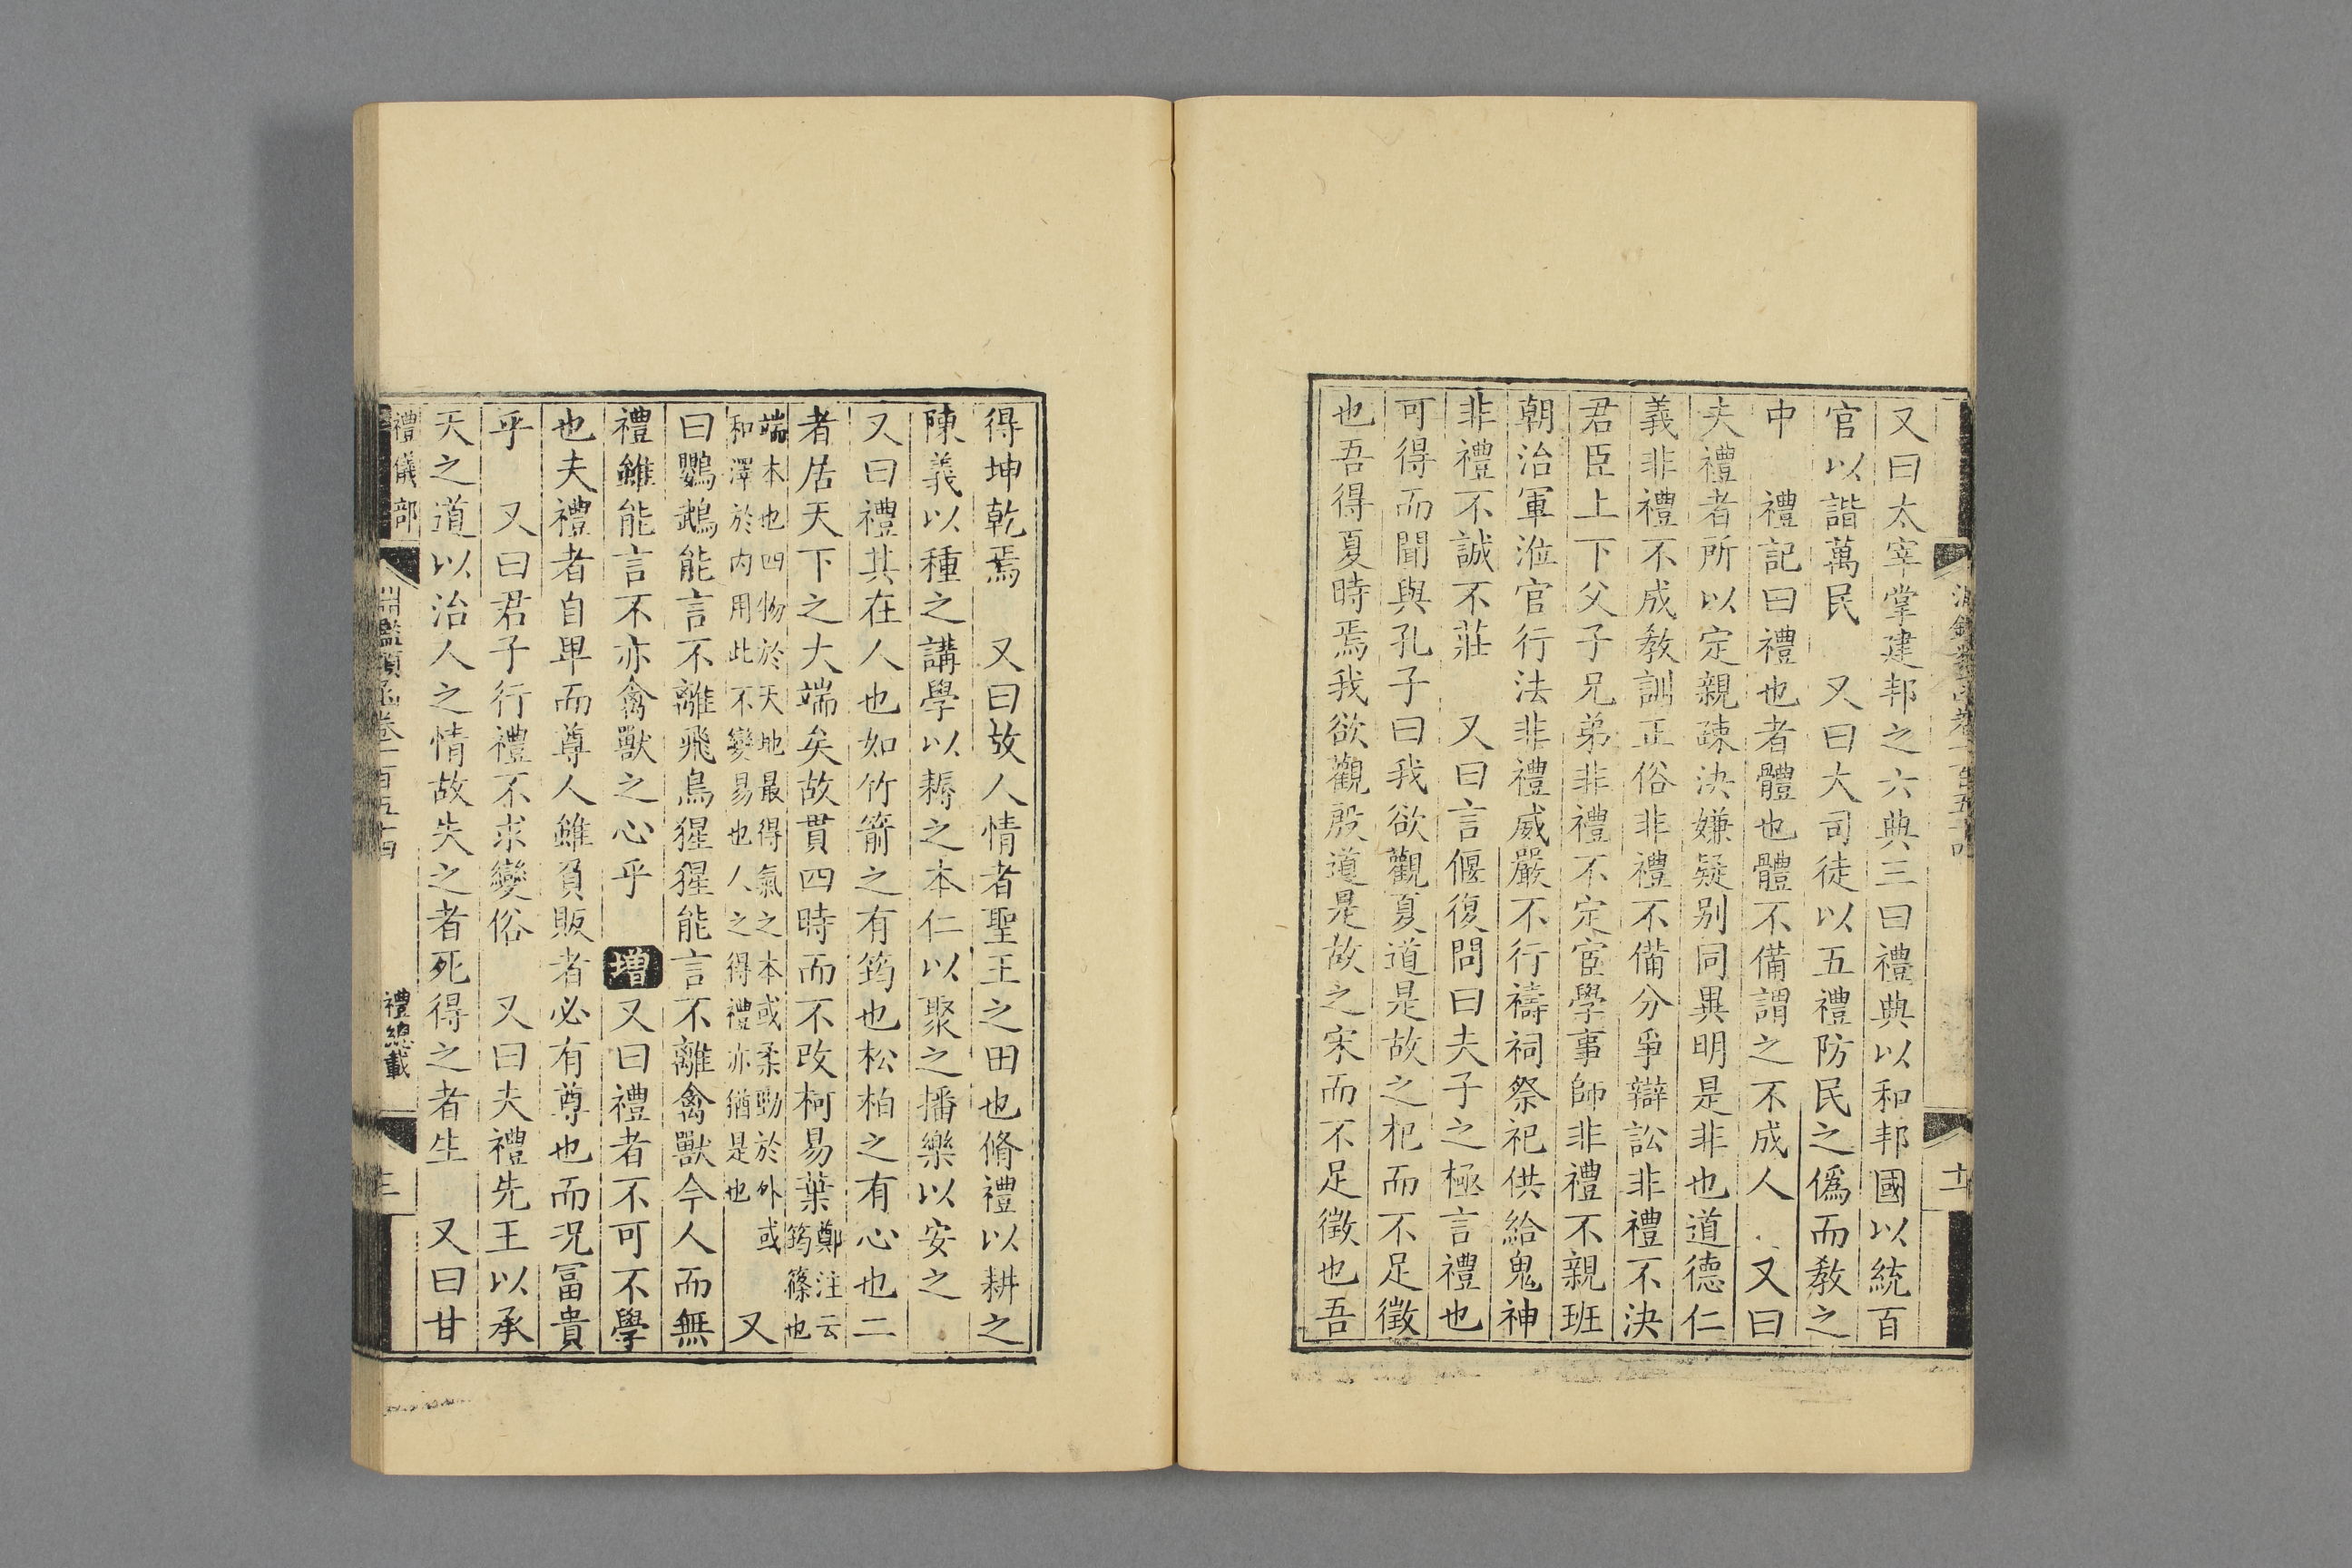 又曰太宰掌建邦之六典三曰禮典以和邦國以統百
官以諧萬民　又曰大司徒以五禮防民之僞而敎之
中　禮記曰禮也者體也體不備謂之不成人　又曰
夫禮者所以定親疎決嫌疑别同異明是非也道德仁
義非禮不成敎訓正俗非禮不備分爭辯訟非禮不決
君臣上下父子兄弟非禮不定宦學事師非禮不親班
朝治軍涖官行法非禮威嚴不行禱祠祭祀供給鬼神
非禮不誠不莊　又曰言偃復問曰夫子之極言禮也
可得而聞與孔子曰我欲觀夏道是故之杞而不足徵
也吾得夏時焉我欲觀殷道是故之宋而不足徵也吾
得坤乾焉　又曰故人情者聖王之田也脩禮以耕之
陳義以種之講學以耨之本仁以聚之播樂以安之
又曰禮其在人也如竹箭之有筠也松柏之有心也二
者居天下之大端矣故貫四時而不改柯易葉鄭注云筠篠也
端本也四物於天地最得氣之本或柔勁於外或
和澤於内用此不變易也人之得禮亦猶是也　又
曰鸚鵡能言不離飛鳥猩猩能言不離禽獸今人而無
禮雖能言不亦禽獸之心乎　增又曰禮者不可不學
也夫禮者自卑而尊人雖負販者必有尊也而況冨貴
乎　又曰君子行禮不求變俗　又曰夫禮先王以承
天之道以治人之情故失之者死得之者生　又曰甘
禮儀部　淵鑑類函卷一百五十四　禮總載　三